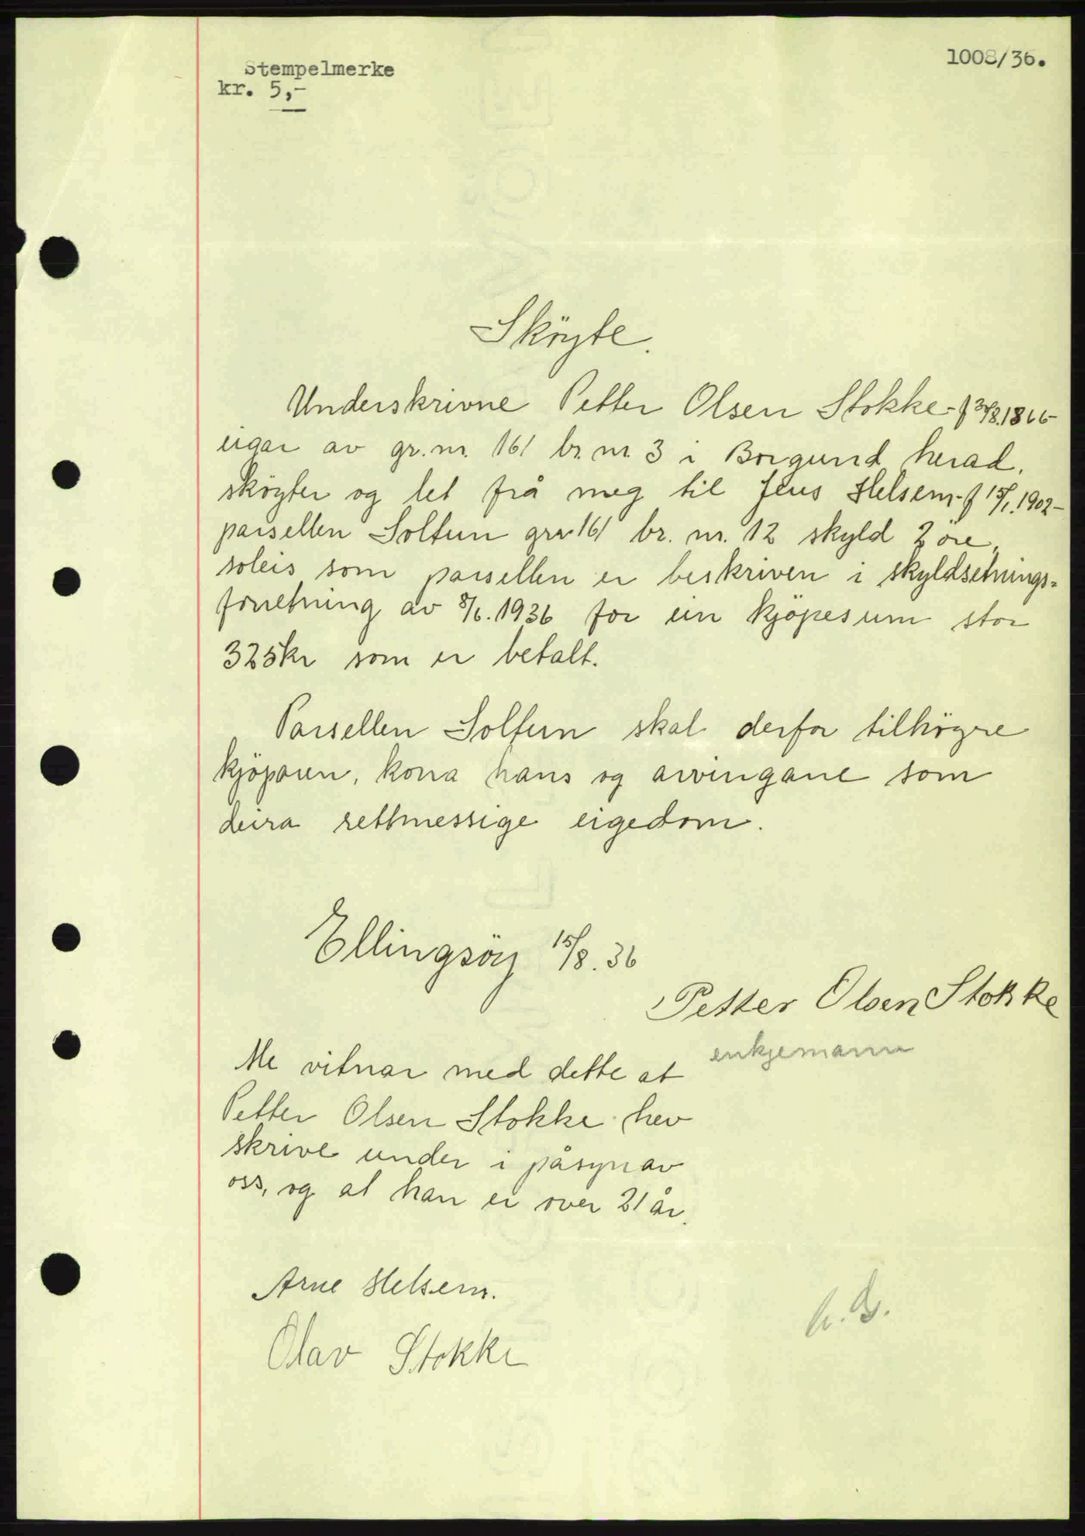 1008/36.
Stempelmerke
kr. 5,-
Sköyte.
Underskrivne Petter Olsen Stokke f 3/8.1866
eigar av gr.nr. 161 br.nr 3 i Borgund herad,
sköyter og let frå meg til Jens Helsem f 15/1.1902
parsellen Soltun grnr 161 br. nr. 12 skyld 2 öre,
soleis som parsellen er beskriven i skyldsetnings-
forretning av 8/6.1936 for ein kjöpesum stor
325kr som er betalt.
Parsellen Soltun skal derfor tilhöyre
kjöparen, kona hans og arvingane som
deira rettmessige eigedom.
Ellingsöy 15/8.36
Petter Olsen Stokke
enkjemann
Me vitnar med dette at
Petter Olsen Stokke hev
skrive under i påsyn av
oss, og at han er over 21 år.
Arne Helsem.
Olav Stokke